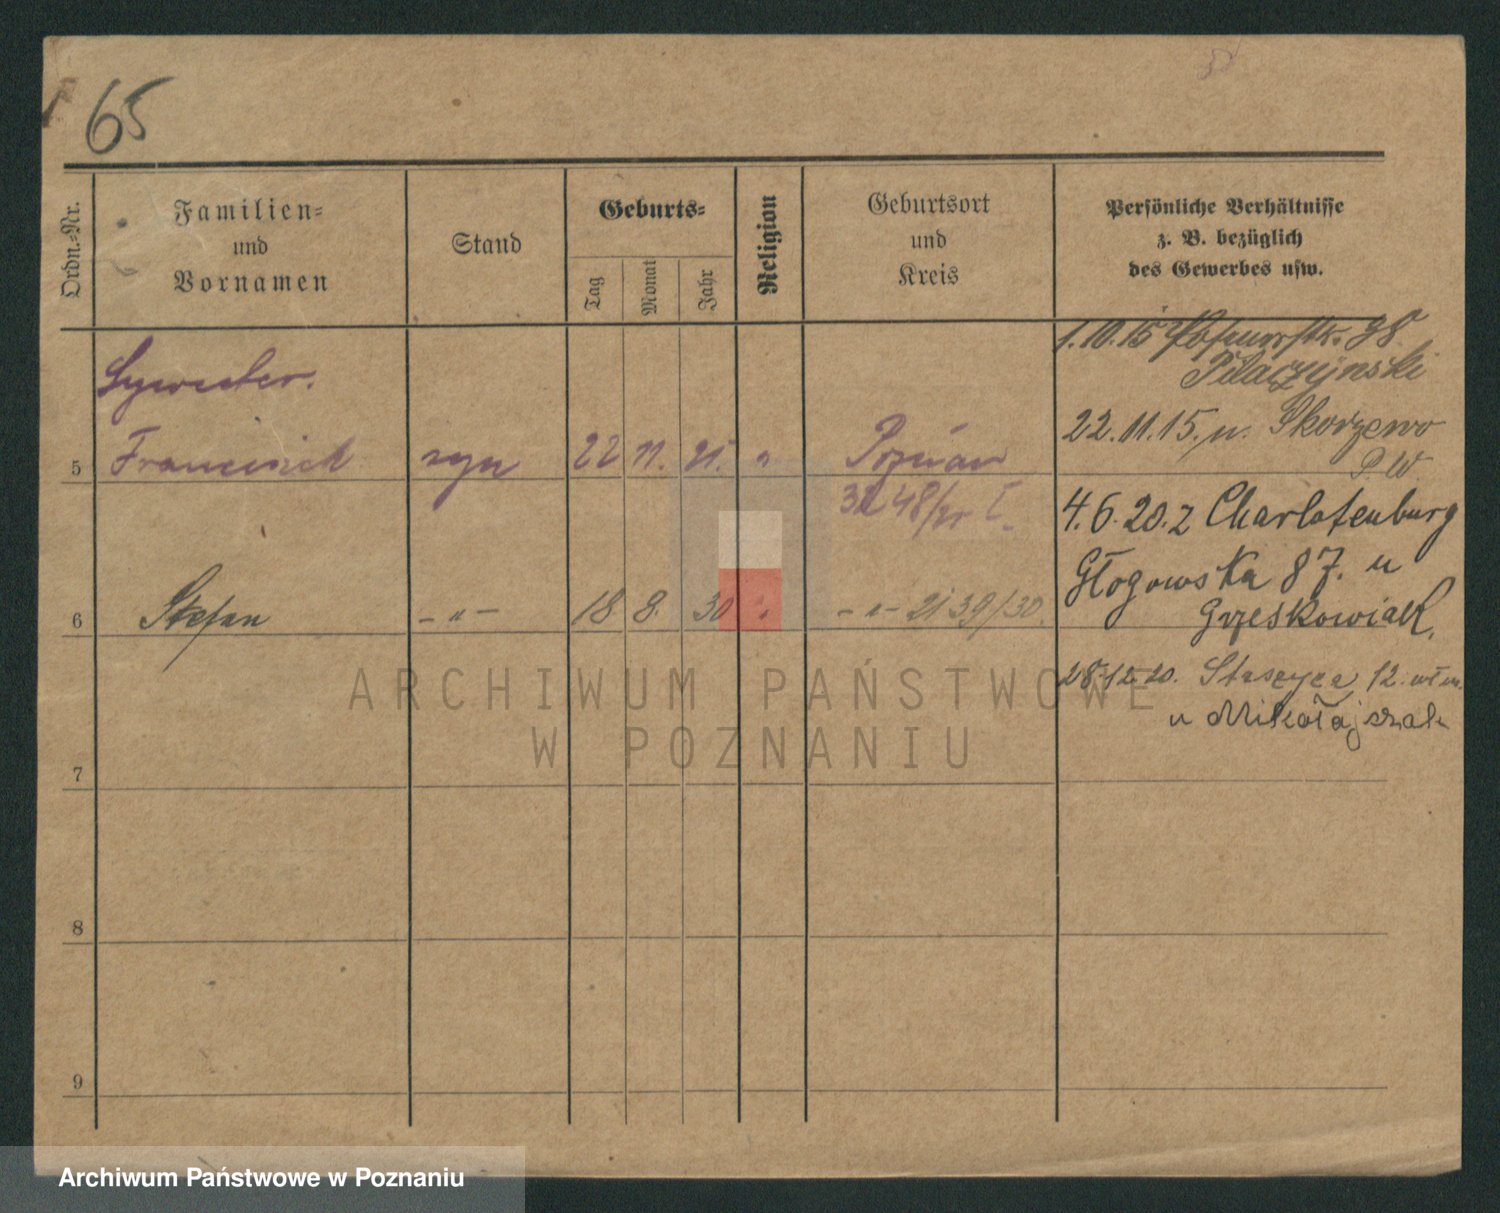 65
Ordn.-Nr.
Familien-
und
Vornamen
Stand
Geburts-
Tag
Monat
Jahr
Religion
Geburtsort
und
Kreis
Persönliche Verhältnisse
z. B. bezüglich
des Gewerbes usw.
1.10.15 Posenerstr. 98
Pilaczyński
Sywester.
22.11.15. n. Skorzewo
P.W
5 Franciszek syn 22 11. 21. " Poznań
4.6.20. z Charlotenburg
Głogowska 87. u
Grzeskowiak.
6 Stefan – " – 18 8. 30 " – " – 2139/30.
28.12.20. Staszyca 12.
u Mikołajczak
7
8
9
ARCHIWUM PAŃSTWOWE
W POZNANIU
Archiwum Państwowe w Poznaniu